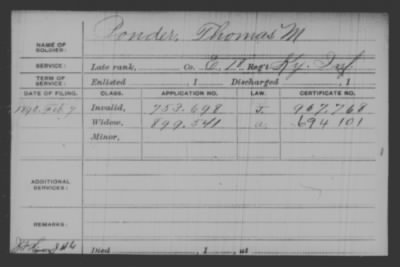 Ponder, Thomas M
NAME OF SOLDIER:
SERVICE: Late rank, Co. E, 18 Reg't Ky. Inf.
TERM OF SERVICE: Enlisted , 1 Discharged , 1
DATE OF FILING. CLASS. APPLICATION NO. LAW. CERTIFICATE NO.
1890, Feb. 7 Invalid, 753.698 967.768
Widow, 899.541 694101
Minor,
ADDITIONAL SERVICES:
REMARKS:
Died , 1 , at